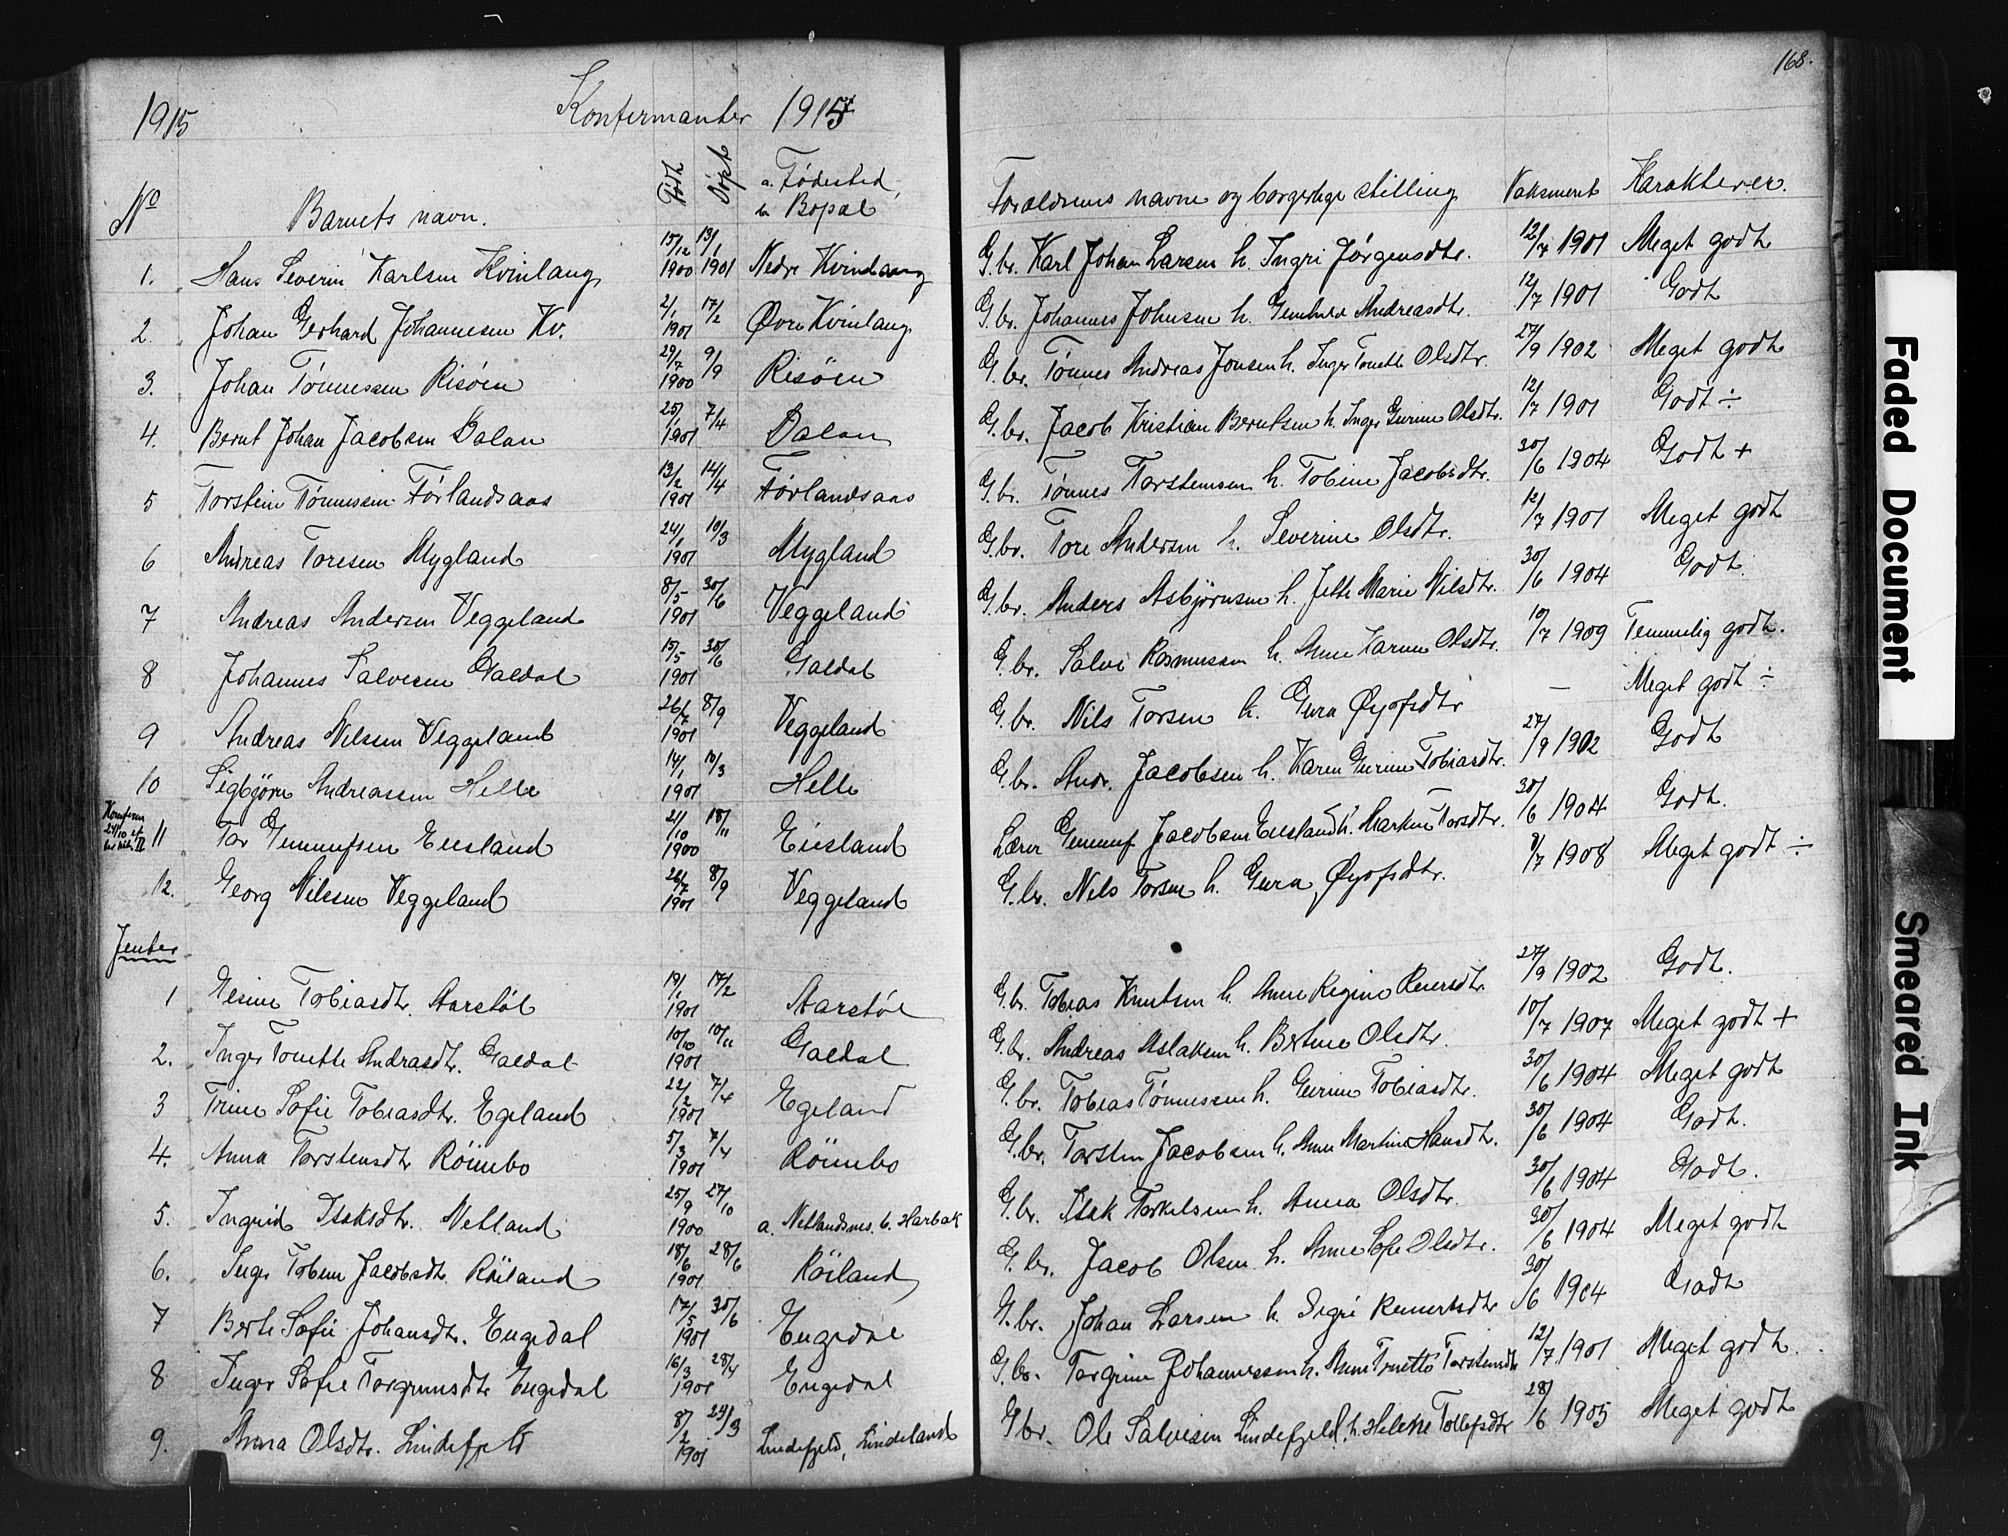 168.
1915
Konfirmanter 1915
No
Barnets navn.
Født
Døpt
a. Fødested,
b. Bopæl
Forældrenes navne og borgerlige stilling
Vaksineret
Karakterer.
1. Hans Severin Karlsen Kvinlaug 15/12 1900 13/1 1901 Nedre Kvinlaug G.br. Karl Johan Larsen h. Ingri Jørgensdtr. 12/7 1901 Meget godt
2. Johan Gerhard Johannesen Kv. 2/1 1901 17/2 Øvre Kvinlaug G.br. Johannes Johnsen h. Gunhild Andreasdtr. 12/7 1901 Godt
3. Johan Tønnessen Risøen 29/7 1900 9/9 Risøen G.br. Tønnes Andreas Jonsen h. Inger Tonette Olsdtr. 27/9 1902 Meget godt
4. Bernt Johan Jacobsen Dalen 25/1 1901 7/4 Dalen G.br. Jacob Kristian Berntsen h. Inger Gurine Olsdtr. 12/7 1901 Godt ÷
5 Torstein Tønnessen Førlandsaas 13/2 1901 14/4 Førlandsaas G.br. Tønnes Torstensen h. Tobine Jacobsdtr. 30/6 1904 Godt +
6 Andreas Toresen Mygland 24/1 1901 10/3 Mygland G.br. Tore Andersen h. Severine Olsdtr. 12/7 1901 Meget godt
7 Andreas Andersen Veggeland 8/5 1901 30/6 Veggeland G.br. Anders Asbjørnsen h. Jette Marie Nilsdtr. 30/6 1904 Godt.
8 Johannes Salvesen Galdal 15/5 1901 30/6 Galdal G.br. Salve Rasmussen h. Anne Karine Olsdtr. 10/7 1909 Temmelig godt.
9 Andreas Nilssen Veggeland 26/7 1901 8/9 Veggeland G.br. Nils Torsen h. Gura Øyofsdtr — Meget godt ÷
10 Sigbjørn Andreassen Helle 14/1 1901 10/3 Helle G.br. Andr. Jacobsen h. Karen Gurine Tobiasdtr. 27/9 1902 Godt
11 Tor Gunnufsen Eiesland 21/10 1900 18/11 Eiesland Lærer Gunnuf Jacobsen Eiesland h. Martine Torsdtr. 30/6 1904 Godt.
12. Georg Nilssen Veggeland 26/7 1901 8/9 Veggeland G.br. Nils Torsen h. Gura Øyofsdtr. 8/7 1908 Meget godt ÷
Jenter
1 Tobiasdtr. Aarstøl 19/1 1901 17/2 Aarstøl G.br. Tobias Knutsen h. Anne Regine Reiersdtr. 27/9 1902 Godt.
2. Inger Tonette Andrasdtr. Galdal 10/10 1901 10/11 Galdal G.br. Andreas Aslaksen h. Bertine Olsdtr. 10/7 1907 Meget godt +
3 Trine Sofie Tobiasdtr. Egeland 22/2 1901 7/4 Egeland G.br. Tobias Tønnessen h. Gurine Tobiasdtr. 30/6 1904 Meget godt
4. Anna Torstensdtr Röinebo 5/3 1901 7/4 Röinebo G.br. Torsten Jacobsen h. Anne Martine Hansdtr. 30/6 1904 Godt.
5. Ingrid Isaksdtr. Netland 25/9 1900 27/10 a. Netlandsnes. b. Harbak G.br. Isak Torkelsen h. Anna Olsdtr. 30/6 1904 Godt.
6. Inger Tobine Jacobsdtr. Röiland 18/6 1901 28/6 Röiland G.br. Jacob Olsen h. Anne Sofie Olsdtr. 30/6 1904 Meget godt
7 Berte Sofie Johansdtr. Engedal 17/5 1901 30/6 Engedal G.br. Johan Larsen h. Sigri Reinertsdtr 30/6 1904 Godt
8 Inger Sofie Torgrimsdtr Engedal 16/3 1901 28/4 Engedal G.br. Torgrim Johannessen h. Anne Tonette Torstensdtr 12/7 1901 Meget godt.
9. Anna Olsdtr. Lindefjeld 8/2 1901 24/3 Lindefjeld, Lindeland G.br. Ole Salvesen Lindefjeld. h. Helene Tollefsdtr 28/6 1905 Meget godt
Faded Document
Smeared Ink